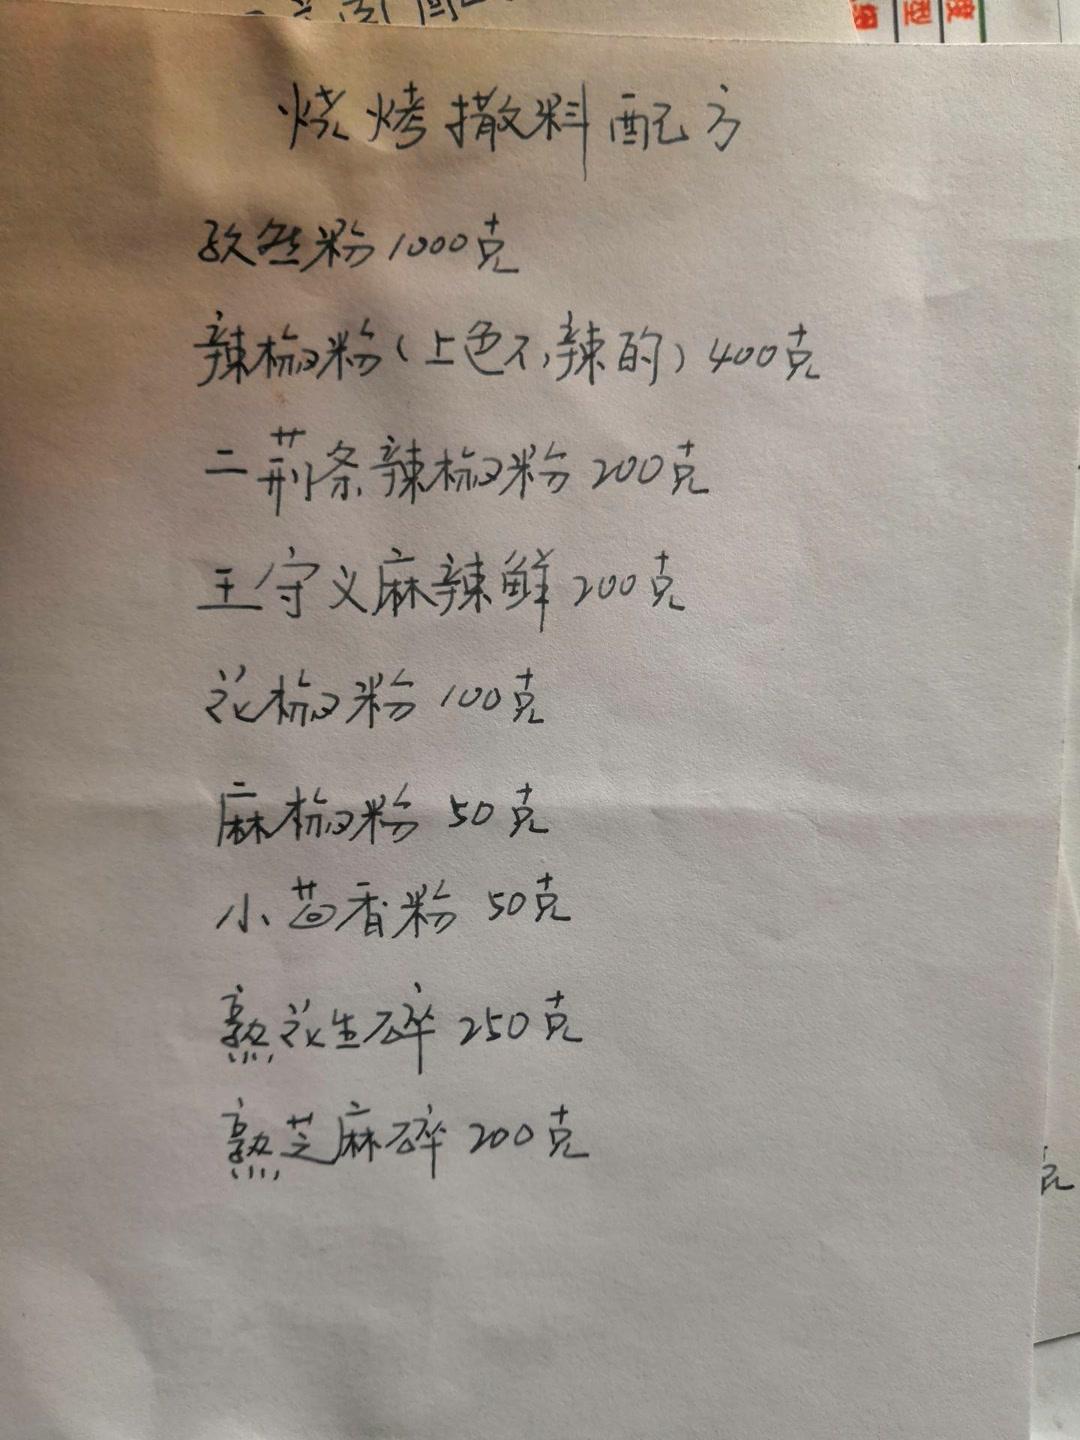 烧烤撒料配方
孜然粉1000克
辣椒粉(上色不辣的)400克
二荆条辣椒粉200克
王守义麻辣鲜200克
花椒粉100克
麻椒粉50克
小茴香粉50克
熟花生碎250克
熟芝麻碎200克
克